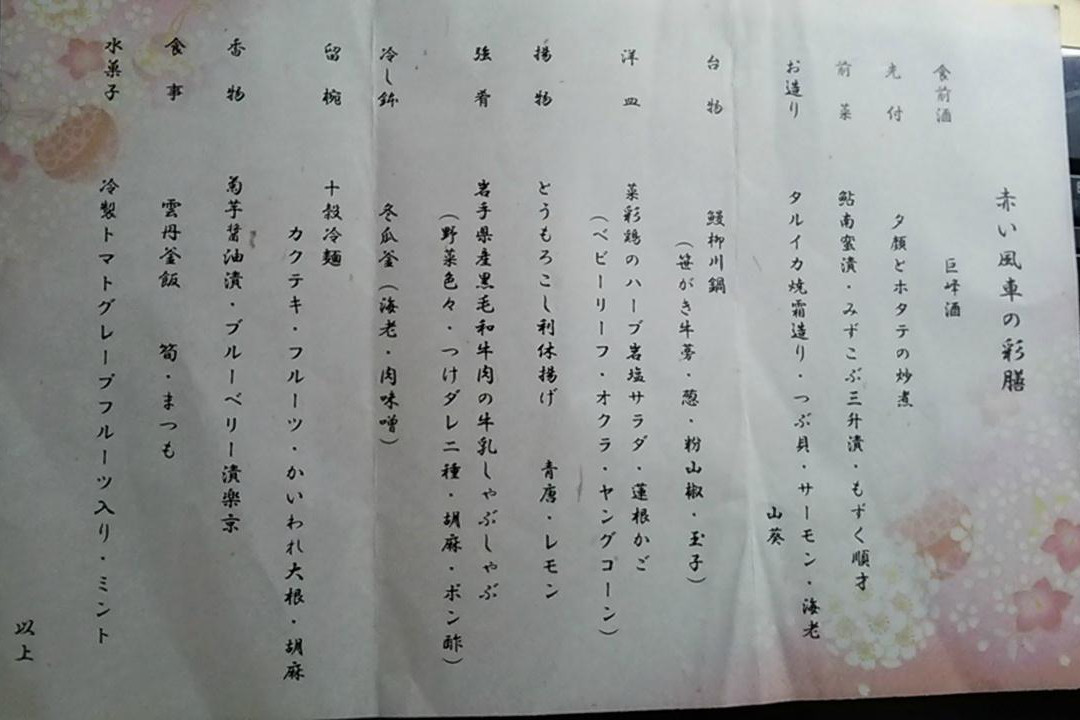 赤い風車の彩膳
食前酒 巨峰酒
先付 夕顔とホタテの炒煮
前菜 鮎南蛮漬・みずこぶ三升漬・もずく順才
お造り タルイカ焼霜造り・つぶ貝・サーモン・海老
山葵
台物 鰻柳川鍋
(笹がき牛蒡・葱・粉山椒・玉子)
洋皿 菜彩鶏のハーブ岩塩サラダ・蓮根かご
(ベビーリーフ・オクラ・ヤングコーン)
揚物 とうもろこし利休揚げ 青唐・レモン
強肴 岩手県産黒毛和牛肉の牛乳しゃぶしゃぶ
(野菜色々・つけダレ二種・胡麻・ポン酢)
冷し鉢 冬瓜釜(海老・肉味噌)
留椀 十穀冷麺
カクテキ・フルーツ・かいわれ大根・胡麻
香物 菊芋醤油漬・ブルーベリー漬楽京
食事 雲丹釜飯 筍・まつも
水菓子 冷製トマトグレープフルーツ入り・ミント
以上